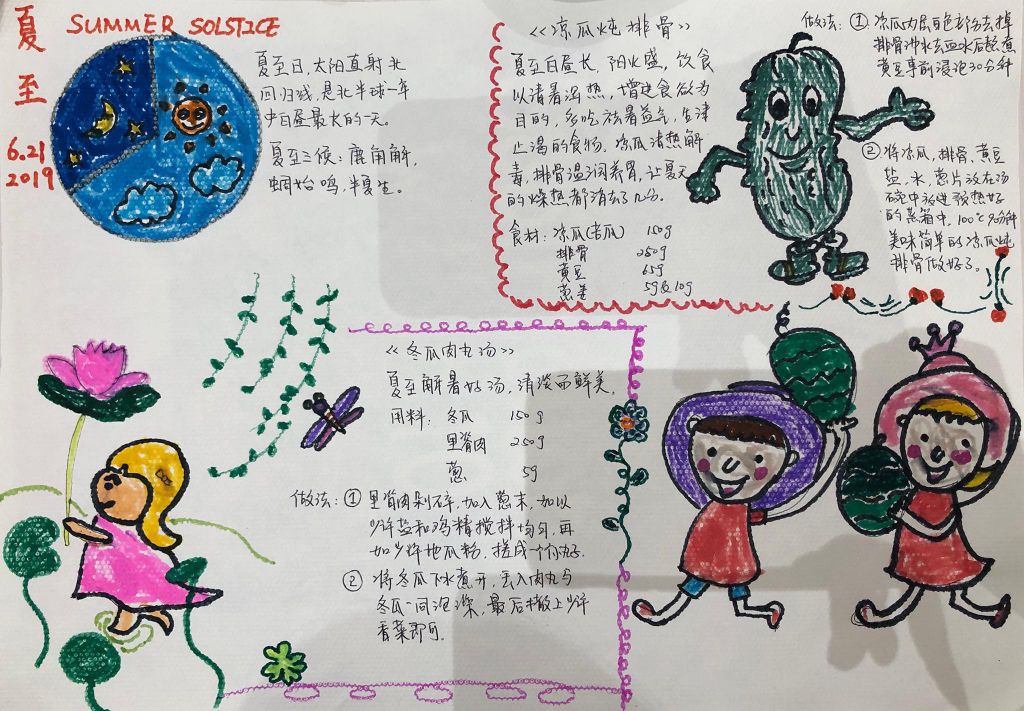 夏至
SUMMER SOLSTICE
6.21
2019
夏至日,太阳直射北
回归线,是北半球一年
中白昼最长的一天。
夏至三候:鹿角解,
蜩始鸣,半夏生。
《凉瓜炖排骨》
夏至白昼长,阳火盛,饮食
以清暑湿热,增进食欲为
目的,多吃祛暑益气,生津
止渴的食物,凉瓜清热解
毒,排骨温润养胃,让夏天
的燥热都消去了几分。
食材:凉瓜(苦瓜) 150g
排骨 250g
黄豆 65g
葱姜 5g&10g
做法:①凉瓜内层白色部分去掉
排骨冲水去血水后轻煮
黄豆事前浸泡30分钟
②将凉瓜,排骨,黄豆
盐,水,葱片放在汤
碗中放进预热好
的蒸箱中,100℃90分钟
美味简单的凉瓜炖
排骨做好了。
《冬瓜肉丸汤》
夏至解暑好汤,清淡而鲜美。
用料:冬瓜 150g
里脊肉 250g
葱 5g
做法:①里脊肉剁碎,加入葱末,加以
少许盐和鸡精搅拌均匀,再
加少许地瓜粉,搓成一个个丸子.
②将冬瓜下水煮开,丢入肉丸与
冬瓜一同泡滚,最后撒上少许
香菜即可.